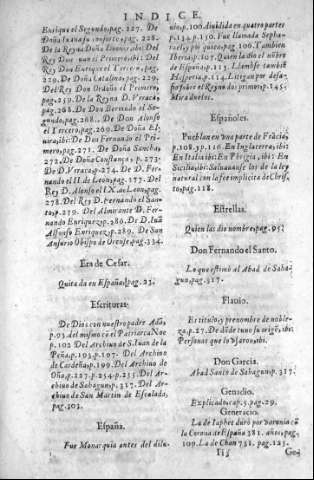 INDICE.
Enrique el Segundo, pag. 227. De
Doña Isabel su consorte, pag. 228.
De la Reyna Doña Leonor, ibi. Del
Rey Don Iuan el Primero, ibi. Del
Rey Don Enrique el Tercero, pag.
229. De Doña Catalina, pag. 229.
Del Rey Don Ordoño el Primero,
pag. 259. De la Reyna D. Vrraca,
pag. 268. De Don Bermudo el Se-
gundo, pag. 268. De Don Alonso
el Tercero, pag. 269. De Doña El-
uira, ibi. De Don Fernando el Pri-
mero, pag. 271. De Doña Sancha,
272. De Doña Constança, p. 273.
De D. Vrraca, p. 274. De D. Fer-
nando el II. de Leon, pag. 177. Del
Rey D. Alonso el IX. de Leon, pag.
278. Del Rey D. Fernando el San-
to, p. 279. Del Almirante D. Fer-
nando Enriquez, p. 289. De D. Iuã
Alfonso Enriquez, p. 289. De San
Ansurio Obispo de Orense, pag. 334.
Era de Cesar.
Quitada en España, pag. 23.
Escrituras.
De Dios con nuestro padre Adã,
p. 93. del mismo cõ el Patriarca Noe
p. 102. Del Archiuo de S. Iuan de la
Peña, p. 193. p. 197. Del Archiuo
de Cardeña, p. 199. Del Archiuo de
Oña, p. 227. p. 254. p. 255. Del Ar-
chiuo de Sahagun, p. 317. Del Ar-
chiuo de San Martin de Escalada,
pag. 303.
España.
Fue Monarquia antes del dilu-
uio, p. 100. diuidida en quatro partes
p. 134. p. 150. Fue llamada Sepha-
rad, y por quien, pag. 100. Tambien
Iberia, p. 107. Quien la dio el nõbre
de España, p. 113. Llamose tambiẽ
Hesperia, p. 114. Litegan por desa-
fio sobre el Reyno dos primos, p. 145.
Mira duelos.
Españoles.
Pueblan en vna parte de Fràcia,
p. 108. y p. 116. En Inglaterra, ibi:
En Italia, ibi: En Phrigia, ibi: En
Sicilia, ibi: Saluauanse los de la ley
natural con la fee implicita de Chris-
to, pag. 118.
Estrellas.
Quien las dio nombre, pag. 95.
Don Fernando el Santo.
Lo que estimò al Abad de Saha-
gun, pag. 317.
Flauio.
Es titulo, y prenombre de noble-
za, p. 27. De dõde tuuo su origẽ, ibi:
Personas que lo vsaron, ibi:
Don Garcia.
Abad Santo de Sahagun, p. 317.
Genadio.
Explicado, cap. 5. pag. 29.
Generacio.
La de Iaphet durò por varonia en
la Corona de España 381. años, pag.
109. La de Chan 751. pag. 125.
Ii3
Go-